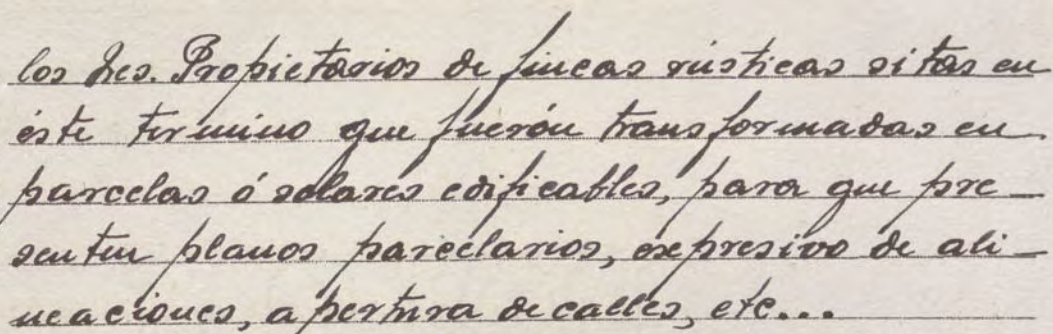 los Sres. Propietarios de fincas rústicas sitas en
éste termino que fuerón transformadas en
parcelas ó solares edificables, para que pre-
senten planos parcelarios, expresivo de ali-
neaciones, apertura de calles, etc...